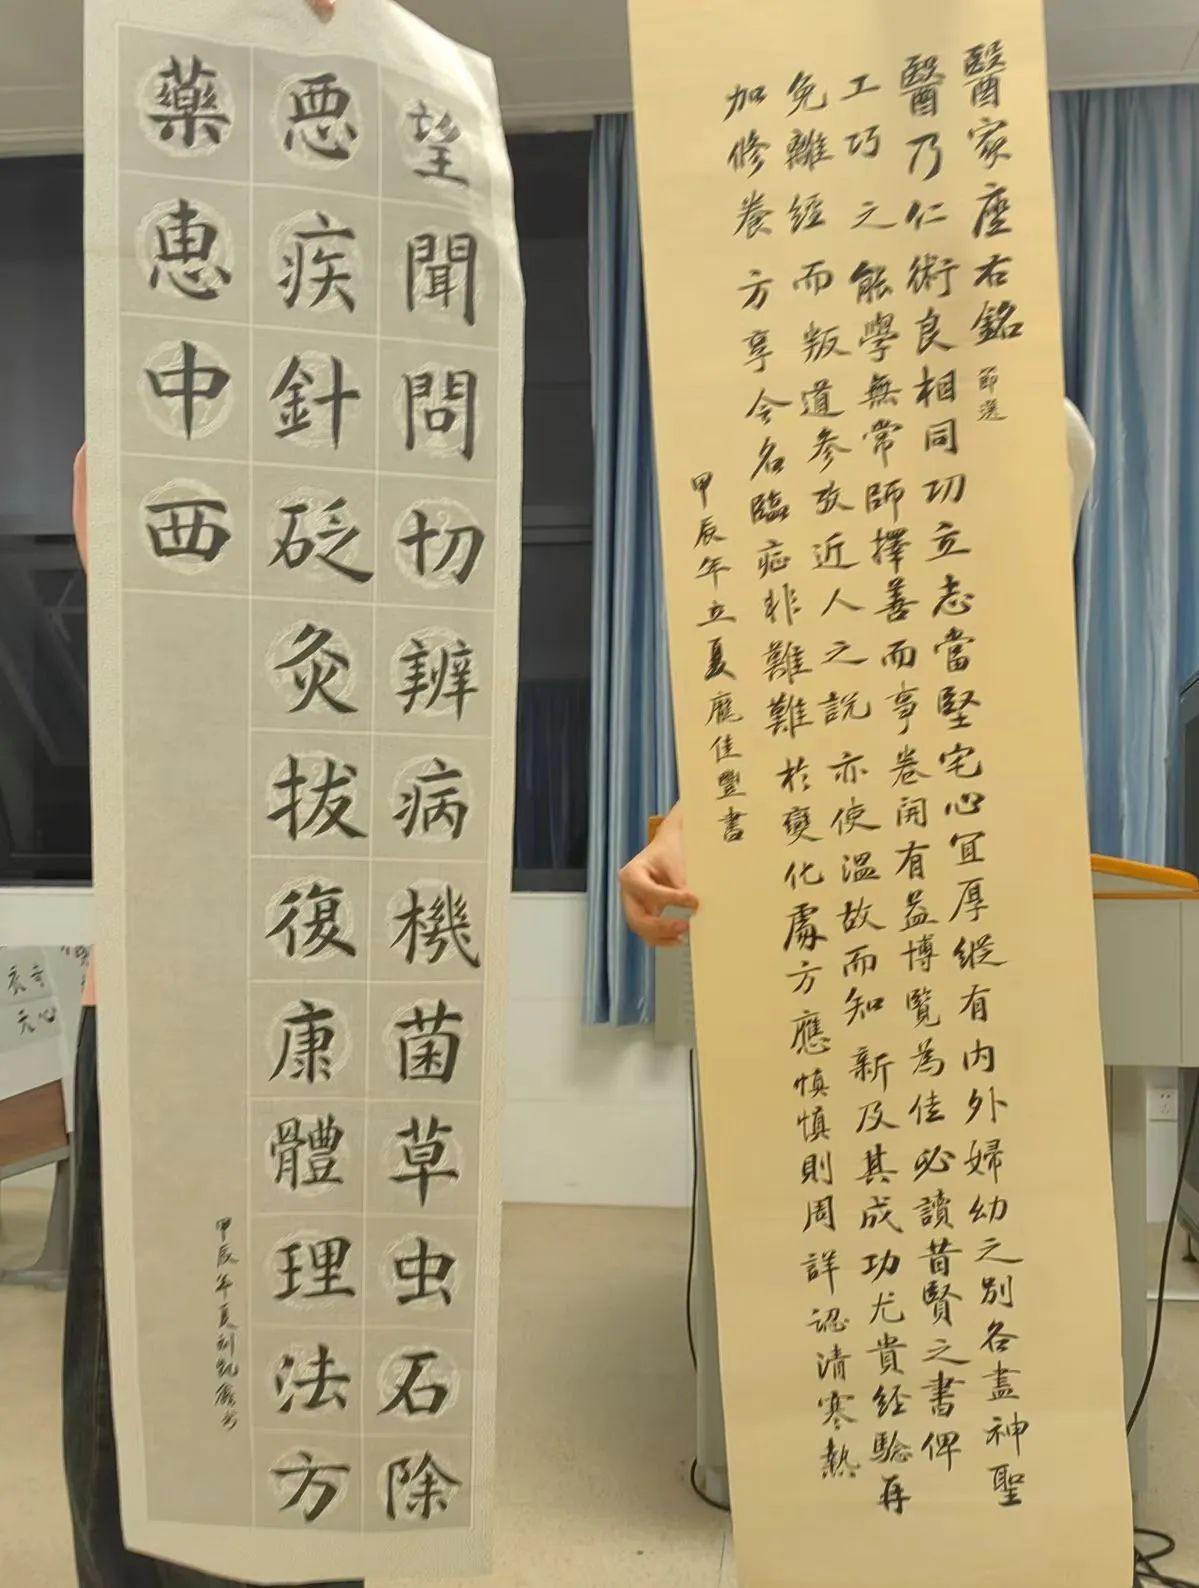 望聞問切辨病機菌草虫石除
悪疾針砭灸拔復康體理法方
藥惠中西
甲辰年夏刘凱鑫书
醫家座右銘 節選
醫乃仁術良相同功立志當堅宅心宜厚縱有内外婦幼之別各盡神聖
工巧之能學無常師擇善而事卷開有益博覽為佳必讀昔賢之書俾
免離經而叛道参攷近人之說亦使温故而知新及其成功尤貴經驗再
加修養方享令名臨症非難難於變化處方應慎慎則周詳認清寒熱
甲辰年立夏龐佳豐書